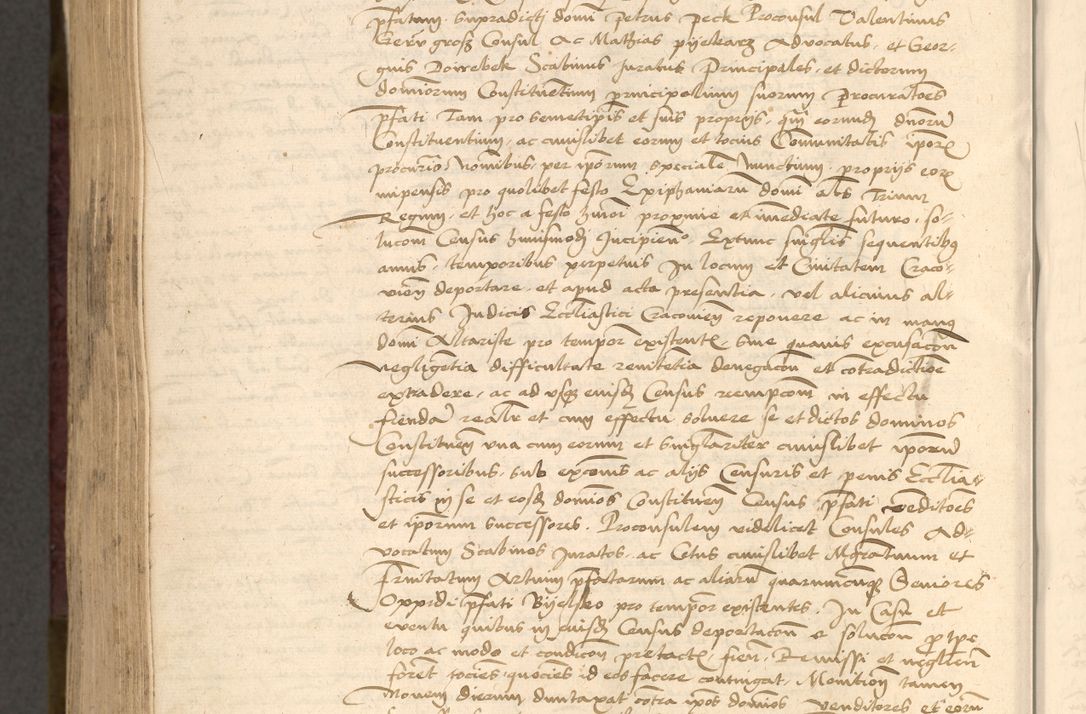 pfatam supradicti domi Petrus Peck Proconsul Valentinus
Consul Ac Mathias Advocatus et Geor-
gius Dowebek Scabinus juratus Principales et dictorum
dominorum Constituentium principalium suorum Procuratoes
pfati Tam pro semetipis et suis proprijs qm eorundz dnorum
Constituentium ac cuiuslibet eorum et tocius Comunitatis ipor
procurio Nominibus per iporum speciale Nunctium proprijs eor
impensis pro quolibet festo Epiphaniarum domi als Trium
Regum et hoc a festo hmoi proxime et immediate futuro so-
lucom Census huiusmodi Incipien Extunc singlis sequentibus
annis temporibus perpetuis In locum et Civitatem Craco-
vien deportare et apud acta presentia vel alicuius al-
terius Judicis Eccliastici Cracovien reponere ac in manus
domi Altariste pro tempor existent sine quavis excusacon
negligetia difficultate renitetia denegacon et cotradictioe
extradere ac ad usq eiusdz Census reempcom in effectu
fienda realr et cum effectu solvere se et dictos dominos
Constituen una cum eorum et singlariter cuiuslibet iporum
successoribus sub excois ac alijs Censuris et penis Ecclia-
sticis in se et eosdz domios Constituen Census pfati venditoes
et iporum successores Proconsulem videlicet Consules Ad-
vocatum Scabinos Juratos ac Cetus cuiuslibet Mgratuum et
Frnitatum Artium pfatarum ac aliaru quarumcuqz Seniores
Oppidi pfati Byelsko pro tempor existentes In Casu et
eventu quibus in eiusdz Census deportacon et solucon p tpe
loco ac modo et condicon pretact fien Remissi et neglien
foret tocies quocies id eos facere contingat Monition tamen
Novem dierum duntaxat cotra ipos domios venditores et eoru